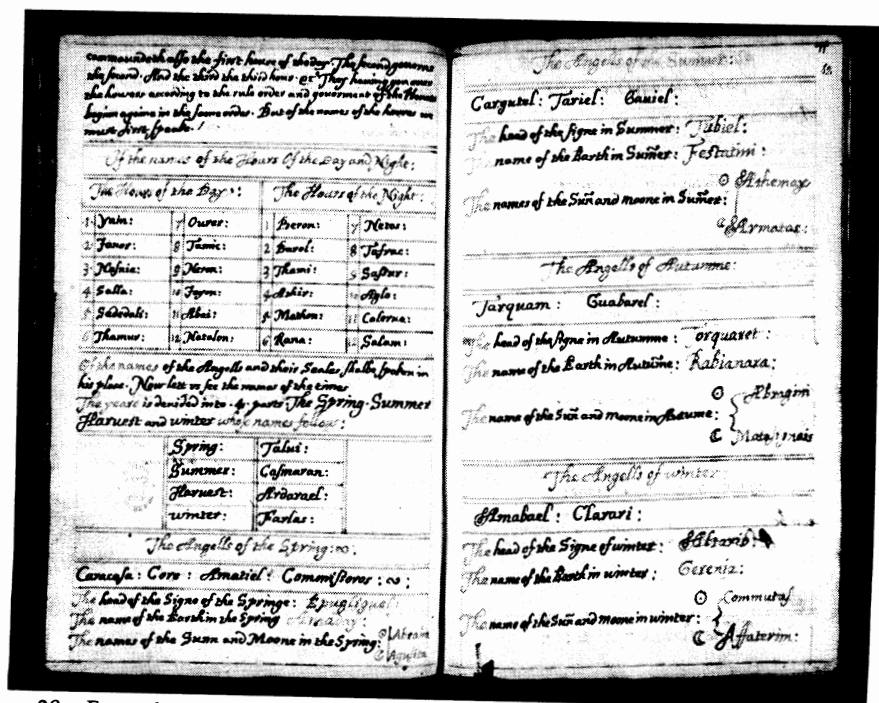 commoundeth also the first houre of the day. The second governs
the second. And the third the third hour. &c They having gon over
the houres according to the rule order and goverment of the Houres
begin againe in the same order. But of the names of the houres we
must first speake.
Of the names of the Hours Of the Day and Night:
The Hours of the Day: The Hours of the Night:
1 Yain: 7 Ourer: 1 Beron: 7 Netos:
2 Janor: 8 Tamic: 2 Barol: 8 Tafrac:
3 Nasnia: 9 Neron: 3 Thami: 9 Sassur:
4 Salla: 10 Jayon: 4 Athir: 10 Aglo:
5 Sadedali: 11 Abai: 5 Mathon: 11 Calerna:
6 Thamur: 12 Natalon: 6 Rana: 12 Salam:
Of the names of the Angells and their Seales shalbe spoken in
his place. Now lett vs see the names of the times
The yeare is devided into .4. parts The Spring. Summer
Harvest and winter whose names follow:
Spring: Talui:
Summer: Casmaran:
Harvest: Ardarael:
winter: Farlas:
The Angells of the Spring:
Caracasa: Core: Amatiel: Commissoros:
The head of the Signe of the Springe: Spugliguel:
The name of the Earth in the Spring
The names of the Sunn and Moone in the Spring: ☉ Abraim
☾ Agusita
The Angells of the Summer:
Gargutel: Tariel: Gauiel:
The head of the signe in Summer: Tubiel:
The name of the Earth in Sum̃er: Festatini:
☉ Athemay
The names of the Sun̄ and moone in Sum̃er:
☾ Armatas:
The Angells of Autumne:
Tarquam: Guabarel:
The head of the signe in Autumne: Torquaret:
The name of the Earth in Autum̃e: Rabianara:
☉ Abragini
The name of the Sun̄ and moone in Autume:
☾ Matasignais
The Angells of winter
Amabael: Clarari:
The head of the Signe of winter: Altarib:
The name of the Earth in winter: Gerenia:
☉ Commutaf
The name of the Sun̄ and moone in winter:
☾ Affaterim: